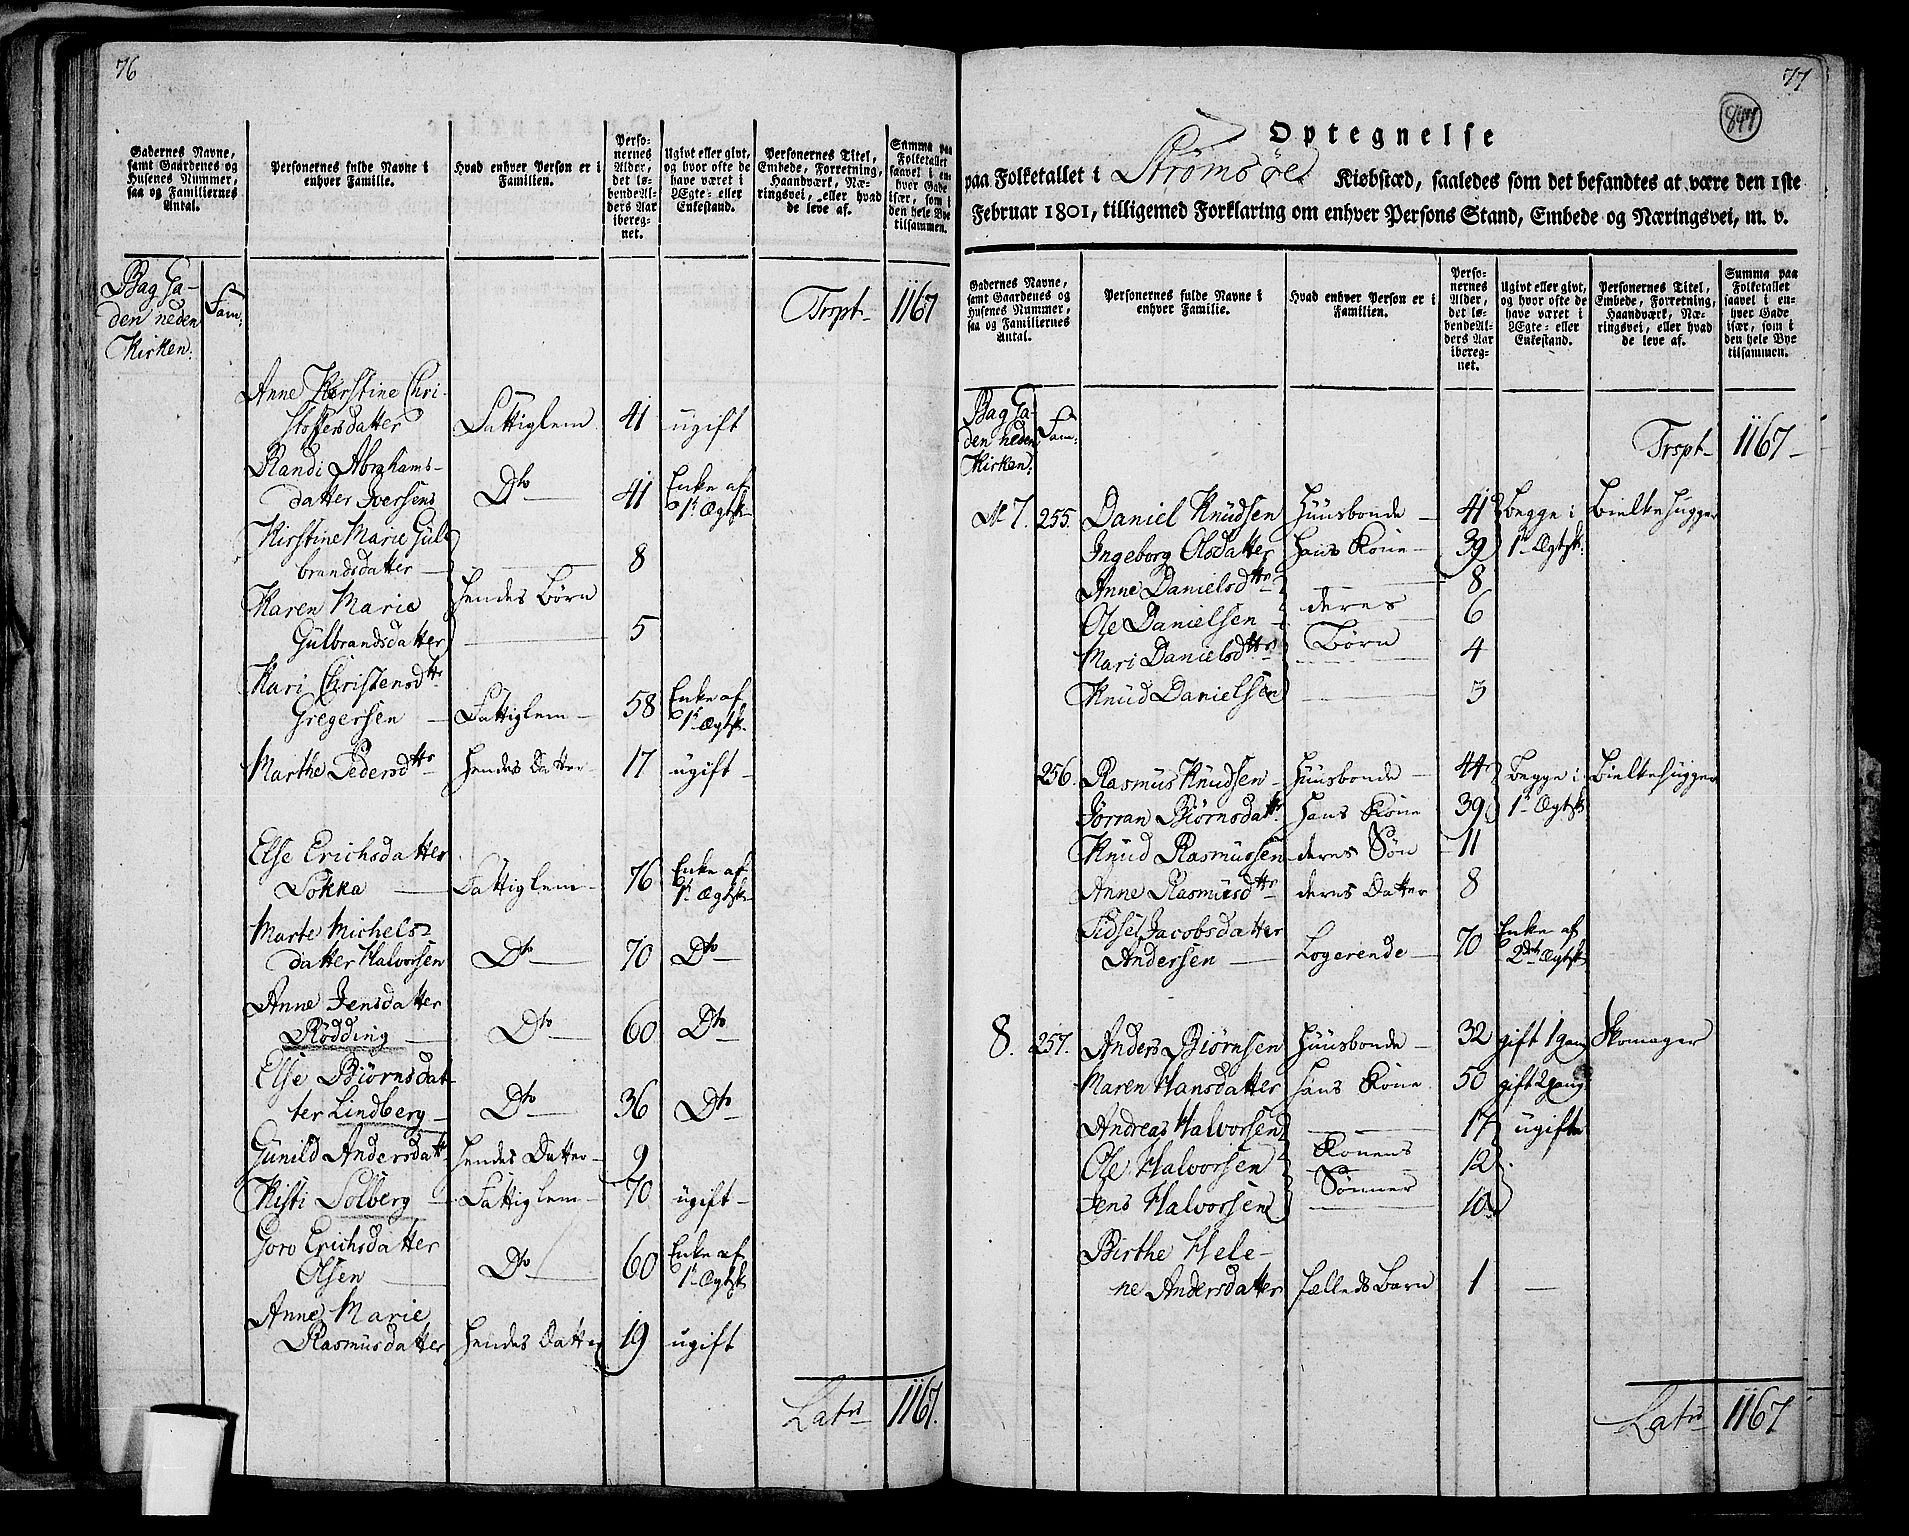 76
Gadernes Navne, samt Gaardenes og Husenes Nummer, saa og Familiernes Antal.
Personernes fulde Navne i enhver Familie.
Hvad enhver Person er i Familien.
Personernes Alder, det løbende Alders Aar ibereget.
Ugivt eller givt, og hvor ofte de have været i Ægte- eller Enkestand.
Personernes Titel, Embede, Forretning, Haandværk, Næringsvei, eller hvad de leve af.
Summa paa Folketallet saavel i enhver Gade især, som i den hele Bye tilsammen.
Bag Ga-
den neden Fam:
Kirken.
Trspt 1167
Anne Kerstine Chri-
stoffersdatter Fattiglem 41 ugift
Randi Abrahams-
datter Iversens Dto 41 Enke af 1t Ægtsk.
Kirstine Marie Gul-
brandsdatter 8
Karen Marie Hendes Børn
Gulbrandsdatter 5
Kari Christensdttr
Gregersen Fattiglem 58 Enke af 1t Ægtsk.
Marthe Pedersdttr Hendes Datter 17 ugift
Else Erichsdatter
Sokka Fattiglem 76 Enke af 1t Ægtsk.
Marte Michels-
datter Halvorsen Dto 70 Dto
Anne Jensdatter
Rødding Dto 60 Dto
Else Biørnsdat-
ter Lindberg Dto 36 Dto
Gunild Andersdatt. Hendes Datter 9
Kisti Solberg Fattiglem 70 ugift
Goro Erichsdatter
Olsen Dto 60 Enke af 1t Ægtsk
Anne Marie
Rasmusdatter Hendes Datter 19 ugift
Latus 1167.
77
844
Optegnelse
paa Folketallet i Strømsøe Kiøbstæd, saaledes som det befandtes at være den 1ste
Februar 1801, tilligemed Forklaring om enhver Persons Stand, Embede og Næringsvei, m. v.
Gadernes Navne, samt Gaardenes og Husenes Nummer, saa og Familiernes Antal.
Personernes fulde Navne i enhver Familie.
Hvad enhver Person er i Familien.
Personernes Alder, det løbende Alders Aar iberegnet.
Ugivt eller givt, og hvor ofte de have været i Ægte- eller Enkestand.
Personernes Titel, Embede, Forretning, Haandværk, Næringsvei, eller hvad de leve af.
Summa paa Folketallet saavel i enhver Gade især, som i den hele Bye tilsammen.
Bag Ga-
den neden Fam:
Kirken.
Trspt 1167
No 7. 255. Daniel Knudsen Huusbonde 41 begge i Bielkehugger
Ingeborg Olsdatter Hans Kone 39 1t Ægtsk.
Anne Danielsdttr 8
Ole Danielsen deres 6
Mari Danielsdttr Børn 4
Knud Danielsen 3
256. Rasmus Knudsen Huusbonde 44 begge i Bielkehugger
Jørran Biørnsdattr Hans Kone 39 1t Ægtsk
Knud Rasmussen deres Søn 11
Anne Rasmusdttr deres Datter 8
Sidsel Jacobsdatter
Andersen Logerende 70 Enke af 2det Ægtsk
8. 257. Anders Biørnsen Huusbonde 32 gift 1 gang Skomager
Maren Hansdatter Hans Kone 50 gift 2 gang
Andreas Halvorsen 17 ugifte
Ole Halvorsen Konens 12
Jens Halvorsen Sønner 10
Birthe Hele-
ne Andersdatter fælleds Barn 1
Latus 1167